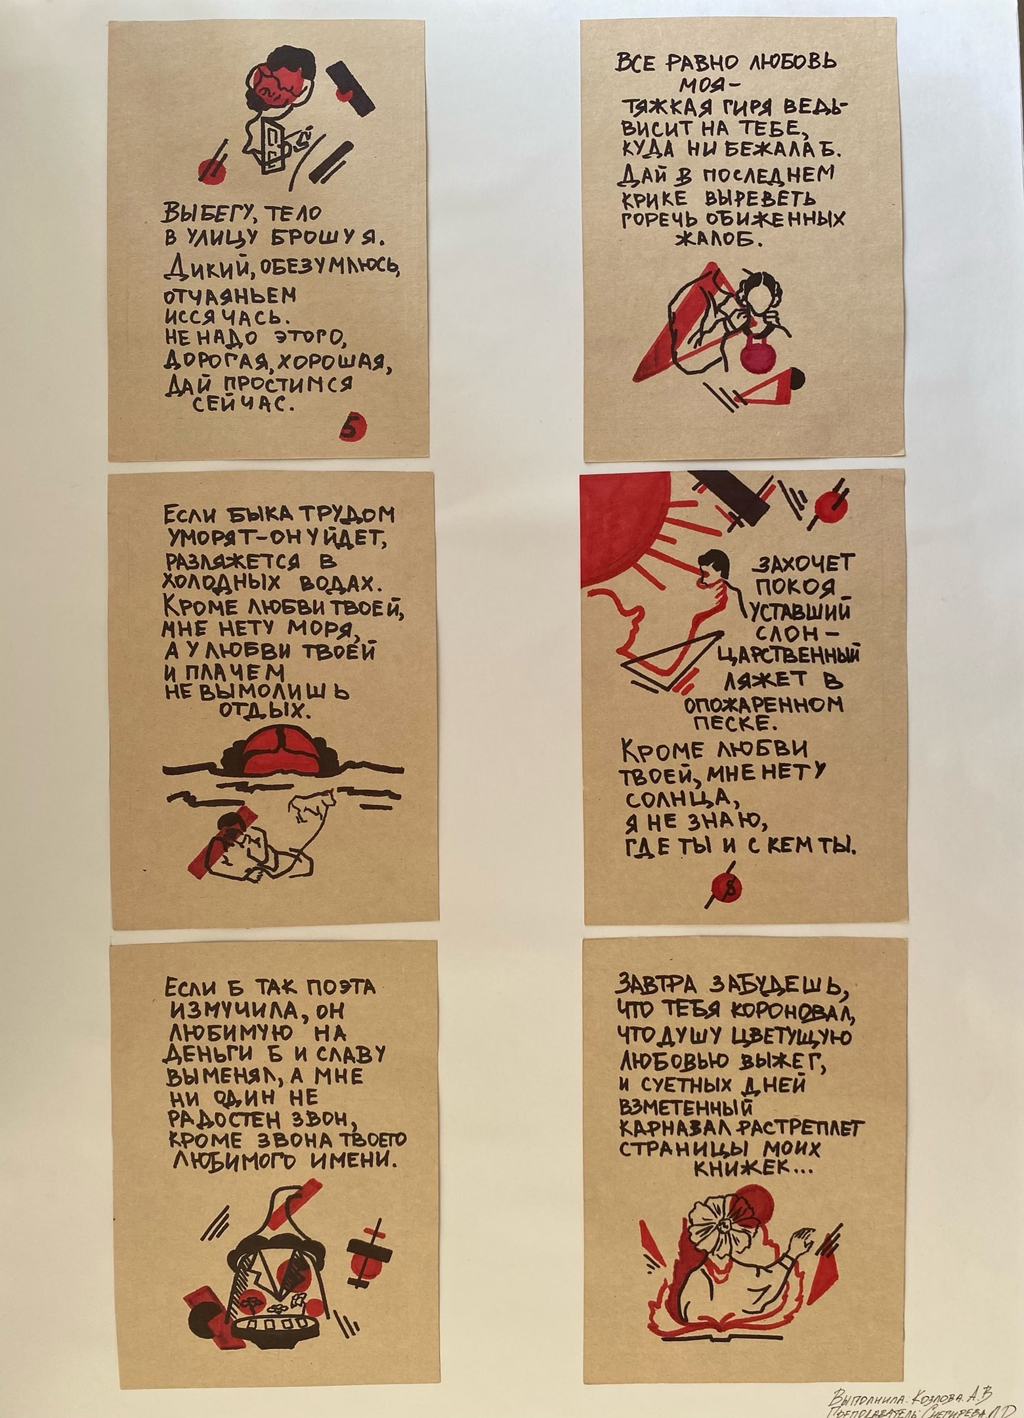 ВЫБЕГУ, ТЕЛО
В УЛИЦУ БРОШУ Я.
ДИКИЙ, ОБЕЗУМЛЮСЬ,
ОТЧАЯНЬЕМ
ИССЯЧАСЬ.
НЕ НАДО ЭТОГО,
ДОРОГАЯ, ХОРОШАЯ,
ДАЙ ПРОСТИМСЯ
СЕЙЧАС.
Б
ВСЕ РАВНО ЛЮБОВЬ
МОЯ-
ТЯЖКАЯ ГИРЯ ВЕДЬ-
ВИСИТ НА ТЕБЕ,
КУДА НИ БЕЖАЛА Б.
ДАЙ В ПОСЛЕДНЕМ
КРИКЕ ВЫРЕВЕТЬ
ГОРЕЧЬ ОБИЖЕННЫХ
ЖАЛОБ.
ЕСЛИ БЫКА ТРУДОМ
УМОРЯТ-ОН УЙДЕТ,
РАЗЛЯЖЕТСЯ В
ХОЛОДНЫХ ВОДАХ.
КРОМЕ ЛЮБВИ ТВОЕЙ,
МНЕ НЕТУ МОРЯ,
А У ЛЮБВИ ТВОЕЙ
И ПЛАЧЕМ
НЕ ВЫМОЛИШЬ
ОТДЫХ.
ЗАХОЧЕТ
ПОКОЯ
УСТАВШИЙ
СЛОН-
ЦАРСТВЕННЫЙ
ЛЯЖЕТ В
ОПОЖАРЕННОМ
ПЕСКЕ.
КРОМЕ ЛЮБВИ
ТВОЕЙ, МНЕ НЕТУ
СОЛНЦА,
Я НЕ ЗНАЮ,
ГДЕ ТЫ И С КЕМ ТЫ.
ЕСЛИ Б ТАК ПОЭТА
ИЗМУЧИЛА, ОН
ЛЮБИМУЮ НА
ДЕНЬГИ Б И СЛАВУ
ВЫМЕНЯЛ, А МНЕ
НИ ОДИН НЕ
РАДОСТЕН ЗВОН,
КРОМЕ ЗВОНА ТВОЕГО
ЛЮБИМОГО ИМЕНИ.
ЗАВТРА ЗАБУДЕШЬ,
ЧТО ТЕБЯ КОРОНОВАЛ,
ЧТО ДУШУ ЦВЕТУЩУЮ
ЛЮБОВЬЮ ВЫЖЕГ,
И СУЕТНЫХ ДНЕЙ
ВЗМЕТЕННЫЙ
КАРНАВАЛ РАСТРЕПЛЕТ
СТРАНИЦЫ МОИХ
КНИЖЕК...
ВЫПОЛНИЛА: КОЗЛОВА А.В
ПРЕПОДАВАТЕЛЬ: